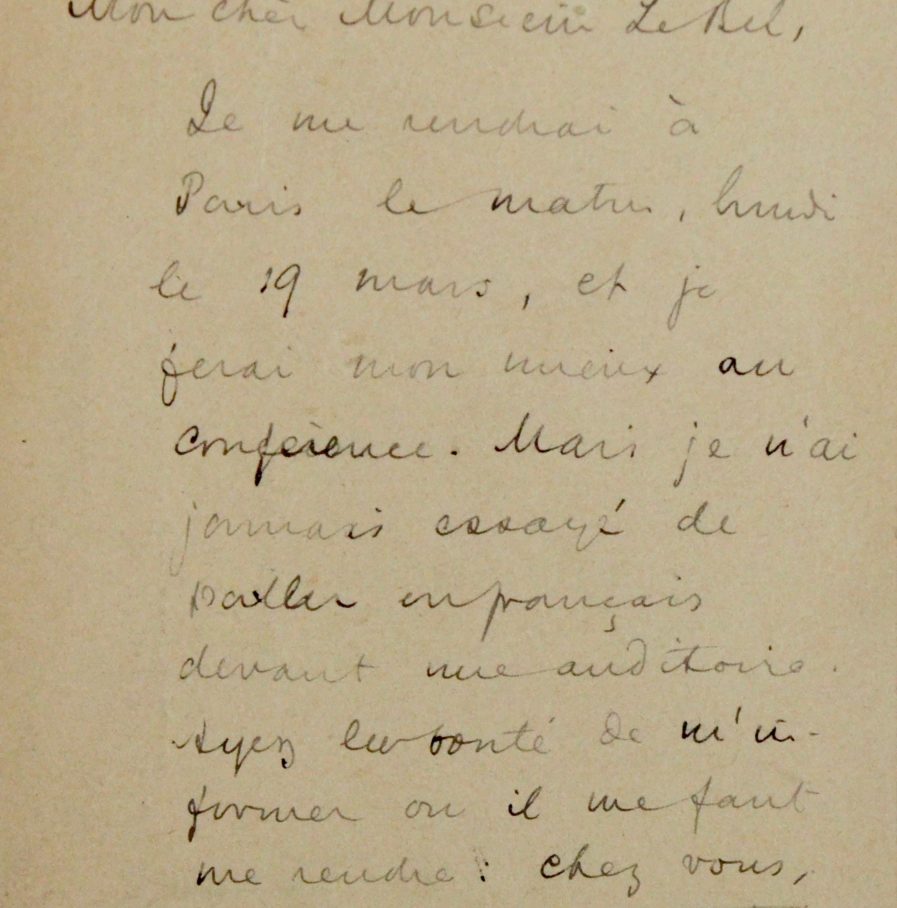 Mon cher Monsieur Le Bel,
Je me rendrai à
Paris le matin, lundi
le 19 mars, et je
ferai mon mieux au
conference. Mais je n'ai
jamais essayé de
parler en français
devant une auditoire.
Ayez la bonté de m'in-
former ou il me faut
me rendre : chez vous,